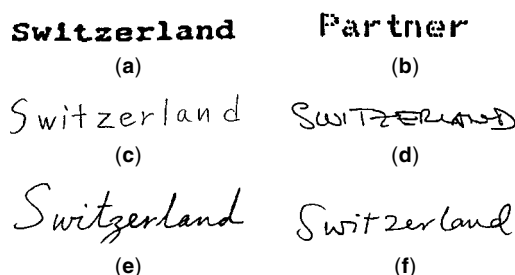 Switzerland Partner
(a) (b)
Switzerland SWITZERLAND
(c) (d)
Switzerland Switzerland
(e) (f)